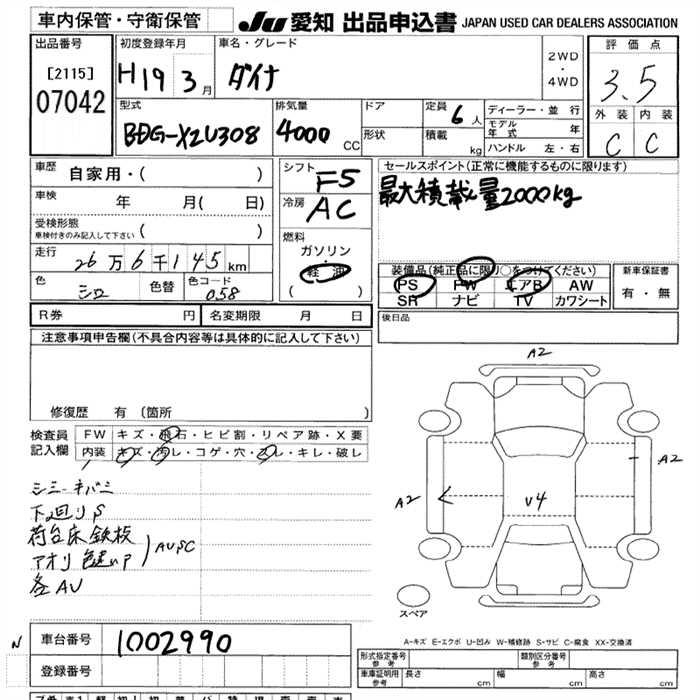 車内保管・守衛保管
JU 愛知 出品申込書 JAPAN USED CAR DEALERS ASSOCIATION
出品番号
[2115]
07042
初度登録年月
H19 3月
車名・グレード
ダイナ
2WD
・
4WD
評価点
3.5
外装 内装
C C
型式
BDG-XZU308
排気量
4000 CC
ドア
形状
定員 6 人
積載 kg
ディーラー・並行
モデル年式 年
ハンドル 左・右
車歴 自家用・( )
車検 年 月( 日)
受検形態
車検付きのみ記入して下さい ( )
走行 26万6千145km
色 シロ
色替
色コード 058
シフト F5
冷房 AC
燃料
ガソリン
・
軽油
( )
セールスポイント(正常に機能するものに限ります)
最大積載量2000kg
装備品(純正品に限り○をつけてください)
PS PW エアB AW
SR ナビ TV カワシート
新車保証書
有・無
R券 円 名変期限 月 日
後日品
注意事項申告欄(不具合内容等は具体的に記入して下さい)
修復歴 有 (箇所 )
検査員
記入欄
FW キズ・飛石・ヒビ割・リペア跡・X要
内装 キズ・汚レ・コゲ・穴・スレ・キレ・破レ
シミ キバミ
下廻りS
荷台床鉄板
アオリ
AUSC
各AU
A2
A2
A2
V4
スペア
A-キズ E-エクボ U-凹み W-補修跡 S-サビ C-腐食 XX-交換済
N
車台番号 1002990
登録番号
形式指定番号
参考
類別区分番号
参考
車庫証明用
参考
長さ cm 幅 cm 高さ cm